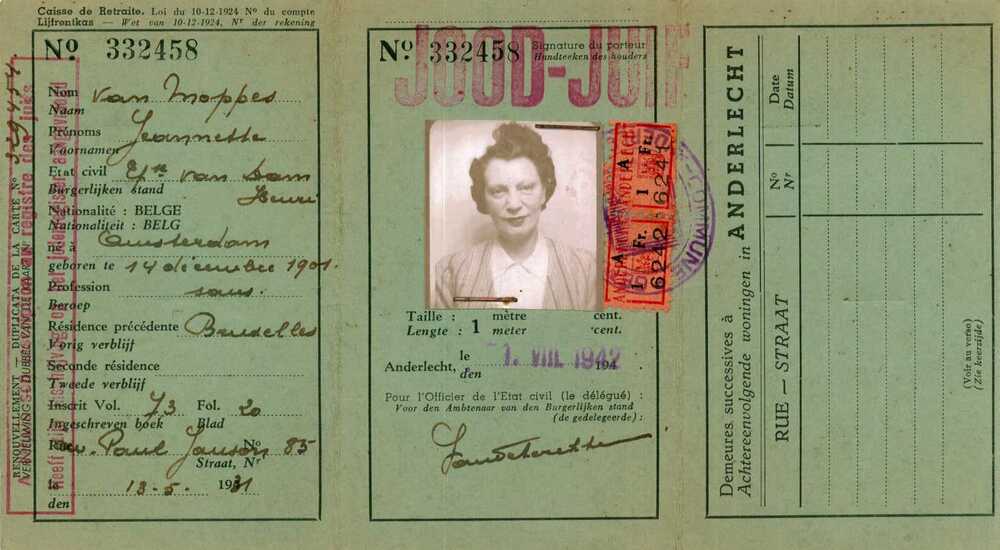 Caisse de Retraite. Loi du 10-12-1924 Nº du compte
Lijfrentkas — Wet van 10-12-1924, Nr der rekening
Nº 332458
Nom van Moppes
Naam
Prénoms Jeannette
Voornamen
Etat civil Epse van Dam
Burgerlijken stand Henri
Nationalité : BELGE
Nationaliteit : BELG
né à Amsterdam
geboren te 14 décembre 1901.
Profession sans.
Beroep
Résidence précédente Bruxelles
Vorig verblijf
Seconde résidence
Tweede verblijf
Inscrit Vol. 73 Fol. 20
Ingeschreven boek Blad
Rue Paul Janson Nº 85
Straat, Nr
le 13-5. 1931
den
RENOUVELLEMENT — DUPLICATA DE LA CARTE Nº 329454
registre des juifs
Nº 332458
Signature du porteur
Handteeken des houders
JOOD-JUIF
ANDERLECHT
1 A Fr.
6241
1 A Fr.
6242
COMMUNE
Taille : mètre cent.
Lengte : 1 meter cent.
Anderlecht, le 1. VIII. 1942 194
den
Pour l'Officier de l'Etat civil (le délégué) :
Voor den Ambtenaar van den Burgerlijken stand
(de gedelegeerde) :
Demeures successives à
Achtereenvolgende woningen in ANDERLECHT
RUE — STRAAT
Nº
Nr
Date
Datum
(Voir au verso)
(Zie keerzijde)